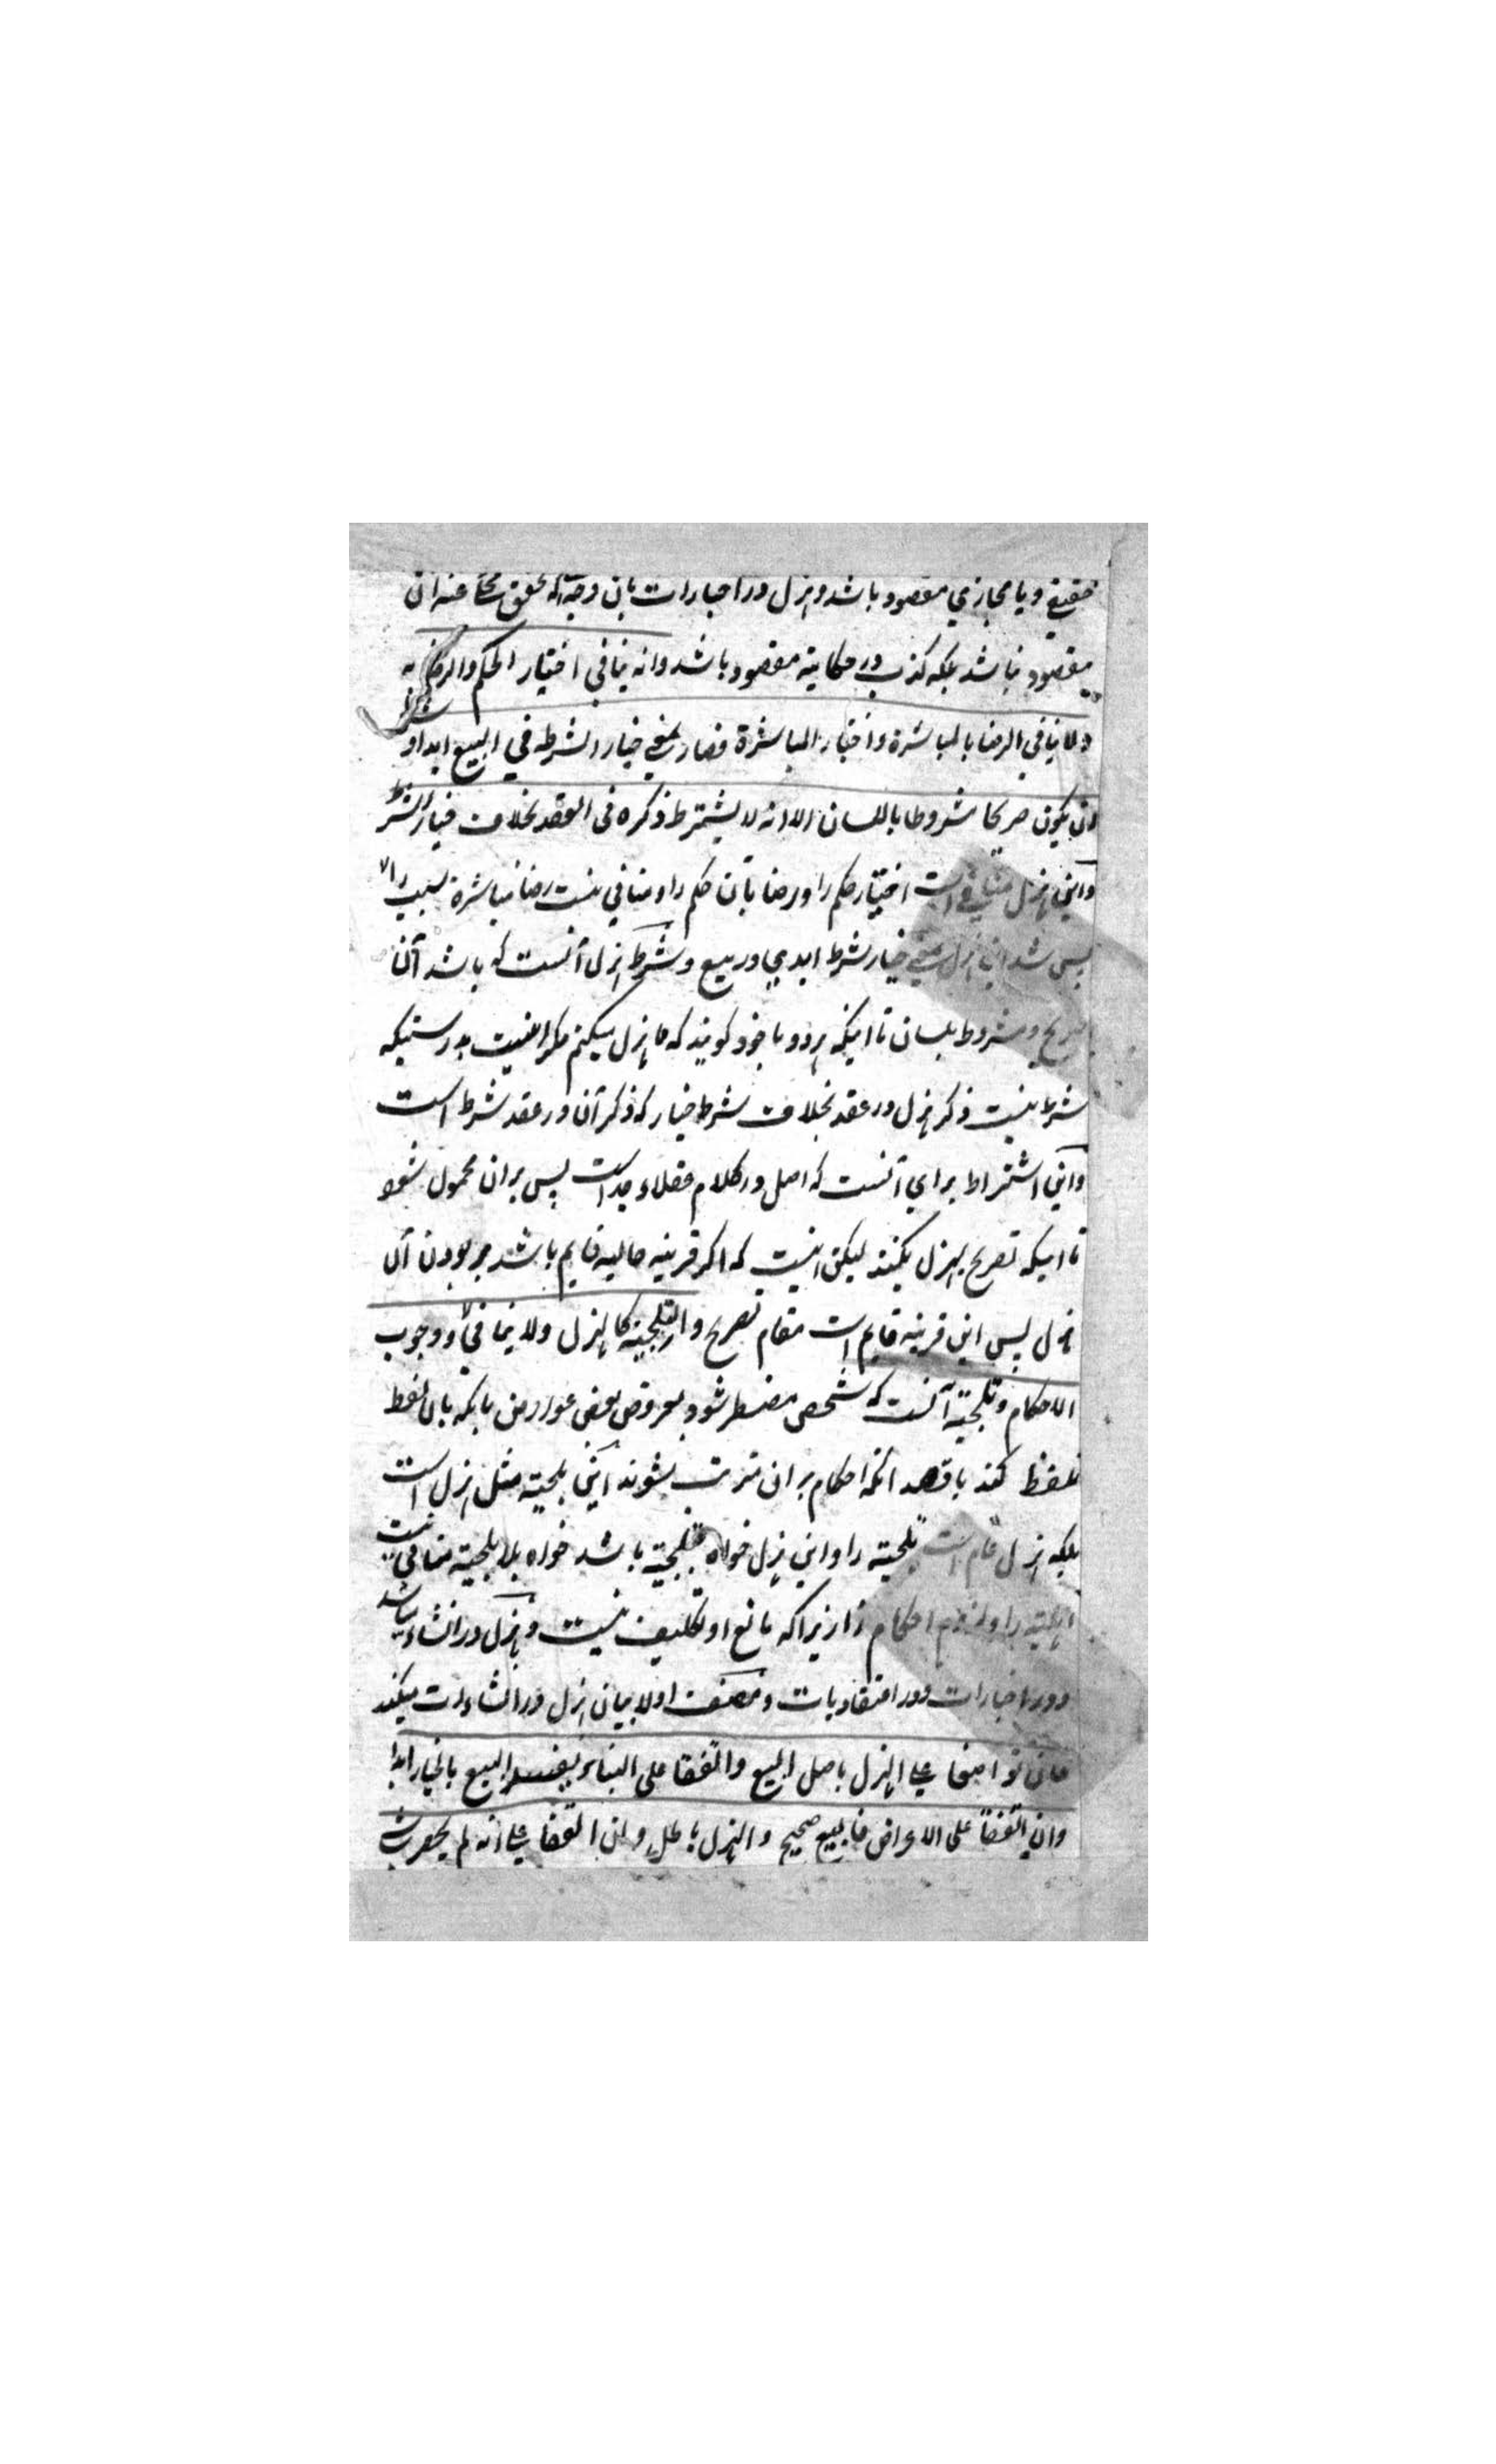 حقیقی و یا مجازی مقصود باشد و هزل در اخبارات بآن وجه که تحقق محکی عنه آن
مقصود نباشد بلکه کذب در حکایة مقصود باشد وانه ینافی اختیار الحکم والرضا به
ولا ینافی الرضا بالمباشرة واختیار المباشرة فصار بمعنی خیار الشرط فی البیع ابدا و شرطه
ان یکون صریحا مشروطا باللسان الا انه لا یشترط ذکره فی العقد بخلاف خیار الشرط
واین هزل منافی است اختیار حکم را و رضا بآن حکم را و منافی نیست رضا مباشرة سبب را
پس شد این هزل بمعنی خیار شرط ابدی در بیع و شرط هزل آنست که باشد آن
صریح و مشروط بلسان تا اینکه هر دو با خود گویند که ما هزل میکنیم مگر اینست بدرستیکه
شرط نیست ذکر هزل در عقد بخلاف شرط خیار که ذکر آن در عقد شرط است
واین اشتراط برای آنست که اصل در کلام عقلاء جد است پس بران محمول شود
تا اینکه تصریح بهزل بکنند لیکن اینست که اگر قرینه حالیه قایم باشد بر بودن آن
هزل پس این قرینه قایم است مقام تصریح والتلجیة کالهزل ولا ینافی وجوب
الاحکام و تلجیة آنست که شخصی مضطر شود بعروض بعض عوارض بانکه بآن لفظ
تلفظ کند با قصد آنکه احکام بران مترتب نشوند این تلجیته مثل هزل است
بلکه هزل عام است تلجیته را واین هزل خواه بتلجیة باشد خواه بلا تلجیته منافی نیست
اهلیته را و لزوم احکام را زیرا که مانع او تکلیف نیست و هزل در انشاء میباشد
و در اخبارات و در اعتقادیات و مصنف اولا بیان هزل در انشاءات میکند
فان تواضعا علی الهزل باصل البیع واتفقا علی البناء یفسد البیع بالخیار ابدا
وان اتفقا علی الاعراض فالبیع صحیح والهزل باطل وان اتفقا علی انه لم یحضر